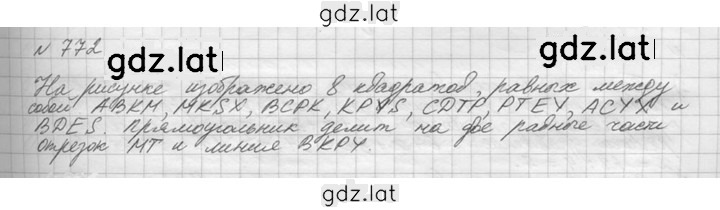 gdz.lat
№ 772
gdz.lat gdz.lat
На рисунке изображено 8 квадратов, равных между
собой ABKM, MKSX, BCPK, KPYS, CDTP, PTEY, ACYX и
BDES. Прямоугольник делит на две равные части
отрезок MT и линия BKPY.
gdz.lat